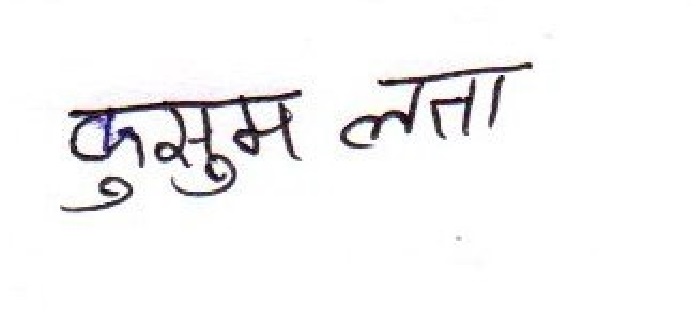 कुसुम लता